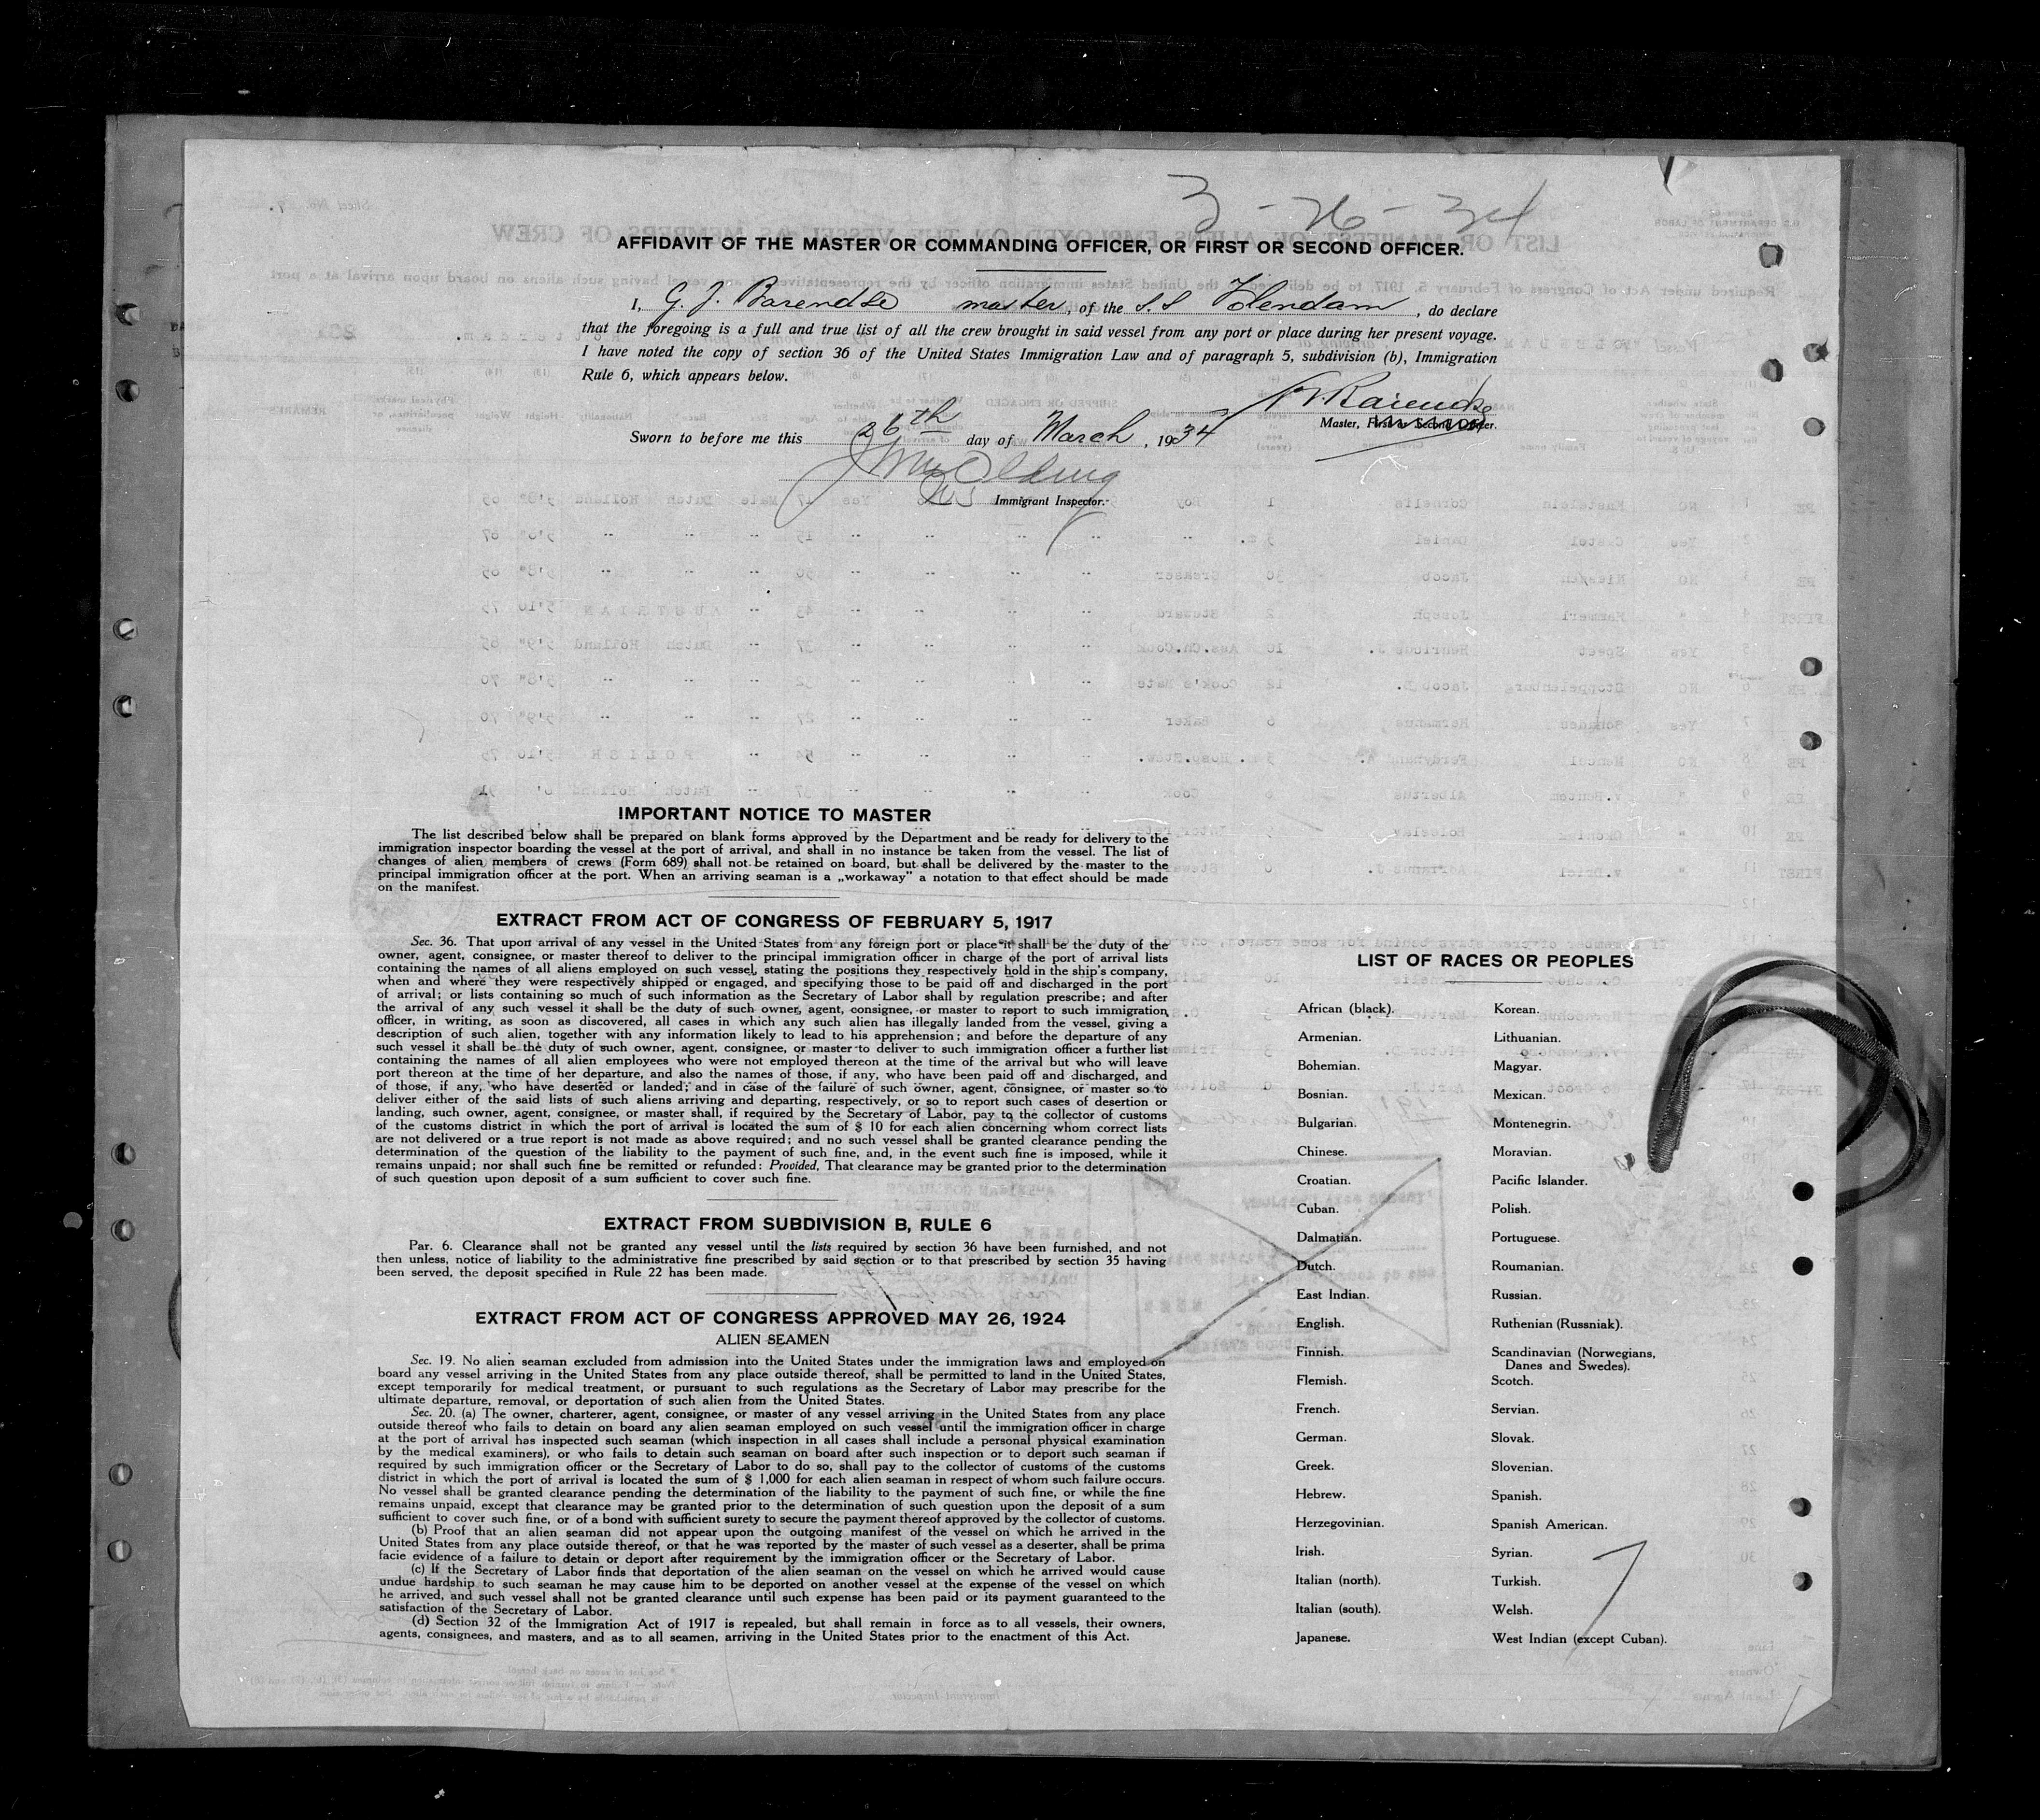 3-26-34
AFFIDAVIT OF THE MASTER OR COMMANDING OFFICER, OR FIRST OR SECOND OFFICER.
I, G. J. Barendse master, of the S.S Volendam, do declare
that the foregoing is a full and true list of all the crew brought in said vessel from any port or place during her present voyage.
I have noted the copy of section 36 of the United States Immigration Law and of paragraph 5, subdivision (b), Immigration
Rule 6, which appears below.
Master, First or Second Officer.
Sworn to before me this 26th day of March, 1934
Immigrant Inspector.
IMPORTANT NOTICE TO MASTER
The list described below shall be prepared on blank forms approved by the Department and be ready for delivery to the
immigration inspector boarding the vessel at the port of arrival, and shall in no instance be taken from the vessel. The list of
changes of alien members of crews (Form 689) shall not be retained on board, but shall be delivered by the master to the
principal immigration officer at the port. When an arriving seaman is a „workaway" a notation to that effect should be made
on the manifest.
EXTRACT FROM ACT OF CONGRESS OF FEBRUARY 5, 1917
Sec. 36. That upon arrival of any vessel in the United States from any foreign port or place it shall be the duty of the
owner, agent, consignee, or master thereof to deliver to the principal immigration officer in charge of the port of arrival lists
containing the names of all aliens employed on such vessel, stating the positions they respectively hold in the ship's company,
when and where they were respectively shipped or engaged, and specifying those to be paid off and discharged in the port
of arrival; or lists containing so much of such information as the Secretary of Labor shall by regulation prescribe; and after
the arrival of any such vessel it shall be the duty of such owner, agent, consignee, or master to report to such immigration
officer, in writing, as soon as discovered, all cases in which any such alien has illegally landed from the vessel, giving a
description of such alien, together with any information likely to lead to his apprehension; and before the departure of any
such vessel it shall be the duty of such owner, agent, consignee, or master to deliver to such immigration officer a further list
containing the names of all alien employees who were not employed thereon at the time of the arrival but who will leave
port thereon at the time of her departure, and also the names of those, if any, who have been paid off and discharged, and
of those, if any, who have deserted or landed; and in case of the failure of such owner, agent, consignee, or master so to
deliver either of the said lists of such aliens arriving and departing, respectively, or so to report such cases of desertion or
landing, such owner, agent, consignee, or master shall, if required by the Secretary of Labor, pay to the collector of customs
of the customs district in which the port of arrival is located the sum of $ 10 for each alien concerning whom correct lists
are not delivered or a true report is not made as above required; and no such vessel shall be granted clearance pending the
determination of the question of the liability to the payment of such fine, and, in the event such fine is imposed, while it
remains unpaid; nor shall such fine be remitted or refunded: Provided, That clearance may be granted prior to the determination
of such question upon deposit of a sum sufficient to cover such fine.
EXTRACT FROM SUBDIVISION B, RULE 6
Par. 6. Clearance shall not be granted any vessel until the lists required by section 36 have been furnished, and not
then unless, notice of liability to the administrative fine prescribed by said section or to that prescribed by section 35 having
been served, the deposit specified in Rule 22 has been made.
EXTRACT FROM ACT OF CONGRESS APPROVED MAY 26, 1924
ALIEN SEAMEN
Sec. 19. No alien seaman excluded from admission into the United States under the immigration laws and employed on
board any vessel arriving in the United States from any place outside thereof, shall be permitted to land in the United States,
except temporarily for medical treatment, or pursuant to such regulations as the Secretary of Labor may prescribe for the
ultimate departure, removal, or deportation of such alien from the United States.
Sec. 20. (a) The owner, charterer, agent, consignee, or master of any vessel arriving in the United States from any place
outside thereof who fails to detain on board any alien seaman employed on such vessel until the immigration officer in charge
at the port of arrival has inspected such seaman (which inspection in all cases shall include a personal physical examination
by the medical examiners), or who fails to detain such seaman on board after such inspection or to deport such seaman if
required by such immigration officer or the Secretary of Labor to do so, shall pay to the collector of customs of the customs
district in which the port of arrival is located the sum of $ 1,000 for each alien seaman in respect of whom such failure occurs.
No vessel shall be granted clearance pending the determination of the liability to the payment of such fine, or while the fine
remains unpaid, except that clearance may be granted prior to the determination of such question upon the deposit of a sum
sufficient to cover such fine, or of a bond with sufficient surety to secure the payment thereof approved by the collector of customs.
(b) Proof that an alien seaman did not appear upon the outgoing manifest of the vessel on which he arrived in the
United States from any place outside thereof, or that he was reported by the master of such vessel as a deserter, shall be prima
facie evidence of a failure to detain or deport after requirement by the immigration officer or the Secretary of Labor.
(c) If the Secretary of Labor finds that deportation of the alien seaman on the vessel on which he arrived would cause
undue hardship to such seaman he may cause him to be deported on another vessel at the expense of the vessel on which
he arrived, and such vessel shall not be granted clearance until such expense has been paid or its payment guaranteed to the
satisfaction of the Secretary of Labor.
(d) Section 32 of the Immigration Act of 1917 is repealed, but shall remain in force as to all vessels, their owners,
agents, consignees, and masters, and as to all seamen, arriving in the United States prior to the enactment of this Act.
LIST OF RACES OR PEOPLES
African (black).
Armenian.
Bohemian.
Bosnian.
Bulgarian.
Chinese.
Croatian.
Cuban.
Dalmatian.
Dutch.
East Indian.
English.
Finnish.
Flemish.
French.
German.
Greek.
Hebrew.
Herzegovinian.
Irish.
Italian (north).
Italian (south).
Japanese.
Korean.
Lithuanian.
Magyar.
Mexican.
Montenegrin.
Moravian.
Pacific Islander.
Polish.
Portuguese.
Roumanian.
Russian.
Ruthenian (Russniak).
Scandinavian (Norwegians,
Danes and Swedes).
Scotch.
Servian.
Slovak.
Slovenian.
Spanish.
Spanish American.
Syrian.
Turkish.
Welsh.
West Indian (except Cuban).
7